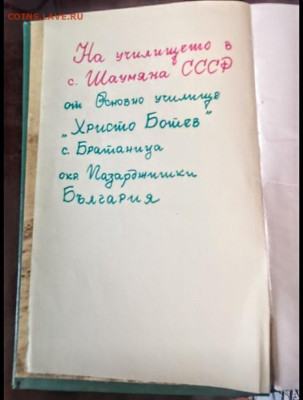 COINS.LAVE.RU
На училището в
с. Шаумяна СССР
от Основно училище
„Христо Ботев"
с. Братаница
окр Пазарджишки
България